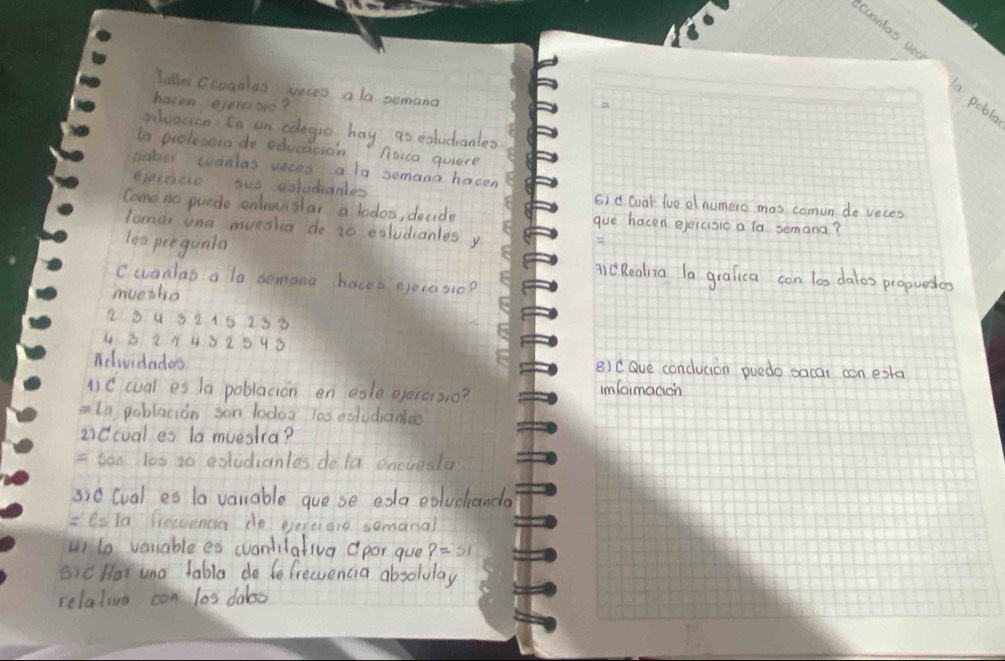 Taller C cuantas veces a la semana
hacen ejercisio?
situacion: En un colegio hay 90 estudiantes
la profesora de educación fisica quiere
saber cuantas veces a la semana hacen
ejercicio sus estudiantes
Como no puede entrevistar a todos, decide
tomar una muestra de 20 estudiantes y
les pregunta
C cuantas a la semana haces ejercisio?
muestra
2 3 4 3 2 1 5 2 3 3
4 3 2 1 4 3 2 5 4 3
Actividades
1) C cual es la población en este ejercisio?
= La población son todos los estudiantes
2) C cual es la muestra?
= son los 20 estudiantes de la encuesta
3) C Cual es la variable que se esta estuchando
= Es la frecuencia de ejercisio semanal
4) La variable es cuantitativa C por que? = si
5) C Haz una tabla de fe frecuencia absolutay
relativa con los datos
=
6) C Cual fue el numero mas comun de veces
que hacen ejercisio a la semana?
=
7) C Realiza la grafica con los datos propuestos
8) C Que conclución puedo sacar con esta
imformación
C cuantas vec
la poblac